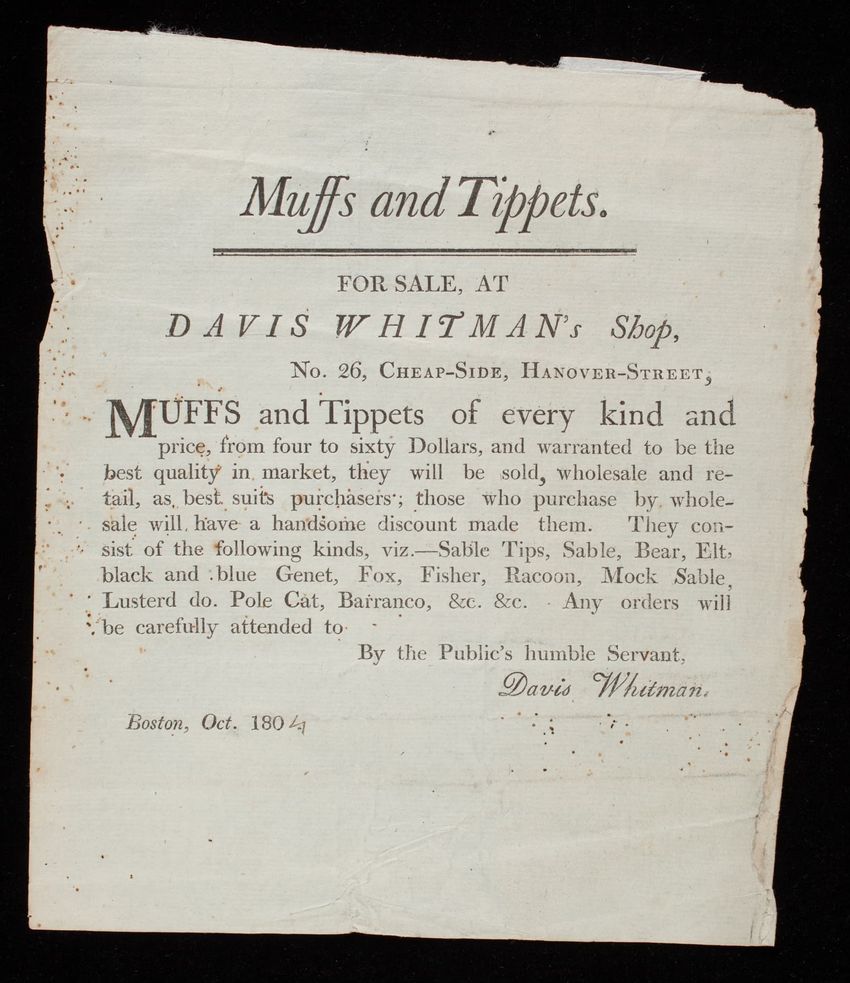 Muffs and Tippets.
FOR SALE, AT
DAVIS WHITMAN's Shop,
No. 26, Cheap-Side, Hanover-Street,
MUFFS and Tippets of every kind and
price, from four to sixty Dollars, and warranted to be the
best quality in market, they will be sold, wholesale and re-
tail, as best suits purchasers; those who purchase by whole-
sale will have a handsome discount made them. They con-
sist of the following kinds, viz.—Sable Tips, Sable, Bear, Elt,
black and blue Genet, Fox, Fisher, Racoon, Mock Sable,
Lusterd do. Pole Cat, Barranco, &c. &c. Any orders will
be carefully attended to
By the Public's humble Servant,
Davis Whitman.
Boston, Oct. 1804